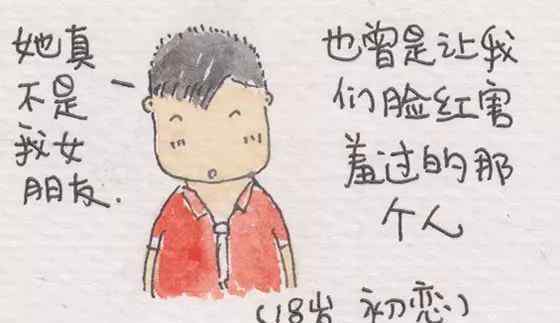 她真
不是
我女
朋友.
也曾是让我
们脸红害
羞过的那
个人
(18岁 初恋)